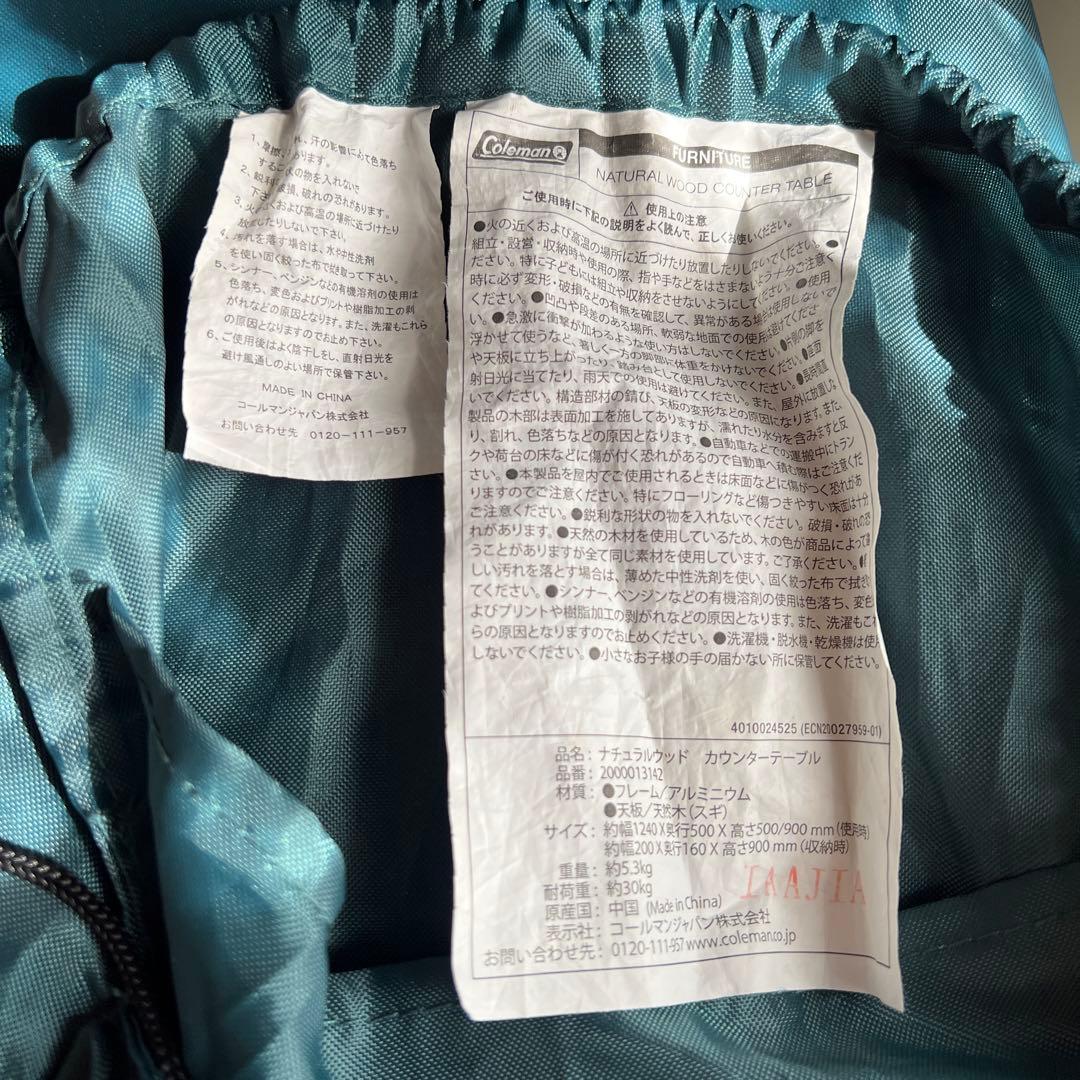 汗の影響によって色落ち
あります。
2、鋭利な
入れないで
破損、破れの恐れがあります。
3、火の近くおよび高温の場所に近づけたり
放置したりしないで下さい。
4、汚れを落す場合は、水や中性洗剤
を使い固く絞った布で拭き取って下さい。
5、シンナー、ベンジンなどの有機溶剤の使用は
色落ち、変色およびプリントや樹脂加工の剥
がれなどの原因となります。また、洗濯もこれら
の原因となりますのでお止め下さい。
6、ご使用後はよく陰干しをし、直射日光を
避け風通しのよい場所で保管下さい。
MADE IN CHINA
コールマンジャパン株式会社
お問い合わせ先 0120-111-957
Coleman
FURNITURE
NATURAL WOOD COUNTER TABLE
⚠ 使用上の注意
ご使用時に下記の説明をよく読んで、正しくお使いください。
●火の近くおよび高温の場所に近づけたり放置したりしないでください。●
組立・設営・収納時や使用の際、指や手などをはさまないよう十分ご注意く
ださい。特に子どもには組立や収納をさせないようにしてください。●使用
時に必ず変形・破損などの有無を確認して、異常がある場合は使用しないで
ください。●凹凸や段差のある場所、軟弱な地面での使用は避けてくださ
い。●急激に衝撃が加わるような使い方はしないでください。●片側の脚を
浮かせて使うなど、著しく一方の脚部に体重をかけないでください。●座面
や天板に立ち上がったり、踏み台として使用しないでください。●長時間直
射日光に当てたり、雨天での使用は避けてください。また、屋外に放置しな
いでください。構造部材の錆び、天板の変形などの原因になります。また、
製品の木部は表面加工を施してありますが、濡れたり水分を含みますと反
り、割れ、色落ちなどの原因となります。●自動車などでの運搬中にトラン
クや荷台の床などに傷が付く恐れがあるので自動車へ積む際はご注意くだ
さい。●本製品を屋内でご使用されるときは床面などに傷がつく恐れがあ
りますのでご注意ください。特にフローリングなど傷つきやすい床面は十分
ご注意ください。●鋭利な形状の物を入れないでください。破損・破れの恐
れがあります。●天然の木材を使用しているため、木の色が商品によって違
うことがありますが全て同じ素材を使用しています。ご了承ください。●
しい汚れを落とす場合は、薄めた中性洗剤を使い、固く絞った布で拭き
てください。●シンナー、ベンジンなどの有機溶剤の使用は色落ち、変色
よびプリントや樹脂加工の剥がれなどの原因となります。また、洗濯もこれ
らの原因となりますのでお止めください。●洗濯機・脱水機・乾燥機は使用
しないでください。●小さなお子様の手の届かない所に保管してください。
4010024525 (ECN20027959-01)
品名：ナチュラルウッド カウンターテーブル
品番：2000013142
材質：●フレーム/アルミニウム
●天板/天然木（スギ）
サイズ：約幅1240X奥行500X高さ500/900 mm（使用時）
約幅200X奥行160X高さ900 mm（収納時）
重量：約5.3kg
耐荷重：約30kg
原産国：中国 (Made in China)
表示社：コールマンジャパン株式会社
お問い合わせ先：0120-111-957 www.coleman.co.jp